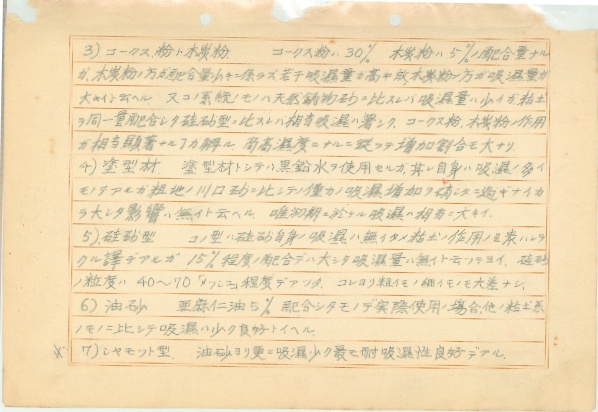 3) コークス粉ト木炭粉　　コークス粉ハ30%　木炭粉ハ5%ノ配合量ナル
ガ、木炭粉ノ方ガ配合量少キニ係ラズ若干吸湿量ガ高キ故木炭粉ノ方ガ吸湿量ガ
大キイト云ヘル　又コノ系統ノモノハ天然鋳物砂ニ比スレバ吸湿量ハ少イガ、粘土
ヲ同一量配合シタ硅砂型ニ比スレバ相当吸湿ハ著シク、コークス粉、木炭粉ノ作用
ガ相当顕著ナル「ガ解ル　尚高湿度ニナルニ従ッテ増加割合モ大ナリ
4) 塗型材　塗型材トシテハ黒鉛水ヲ使用セルガ、其レ自身ハ吸湿ノ多イ
モノデアルガ粗地ノ川口砂ニ比シテノ僅カノ吸湿増加ヲ示シタニ過ギナイカ
ラ大シタ影響ハ無イト云ヘル．唯初期ニ於ケル吸湿ハ相当ニ大キイ．
5) 硅砂型　コノ型ハ硅砂自身ノ吸湿ハ無イタメ粘土ノ作用ノミ表ハレテ
クル譯デアルガ　15%程度ノ配合デハ大シタ吸湿量ハ無イト云ツテヨイ．硅砂
ノ粒度ハ　40〜70「メッシュ」程度デアツタ．コレヨリ粗イモノ細イモノモ大差ナシ．
6) 油砂　亜麻仁油5%　配合シタモノデ実際使用ノ場合、他ノ粘土系
ノモノニ比シテ吸湿ハ少ク良好トイヘル．
7) シャモット型．　油砂ヨリ更ニ吸湿少ク最モ耐吸湿性良好デアル．